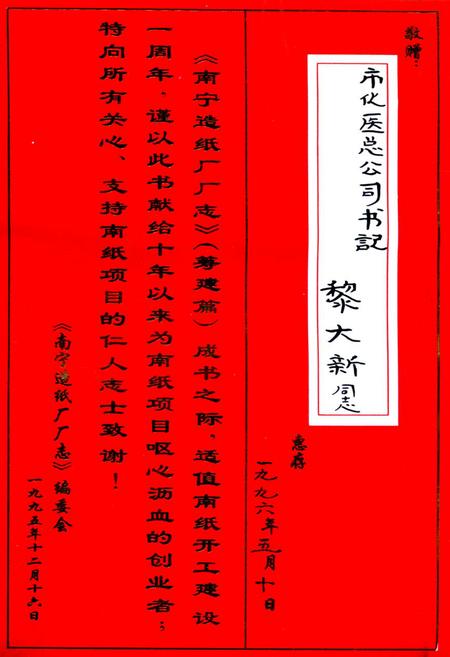 敬赠:
市化医总公司书記
黎大新同志
惠存
一九九六年五月十日
《南宁造纸厂厂志》(筹建篇)成书之际,适值南纸开工建设
一周年,谨以此书献给十年以来为南纸项目呕心沥血的创业者;
特向所有关心、支持南纸项目的仁人志士致谢!
《南宁造纸厂厂志》编委会
一九九五年十二月十六日